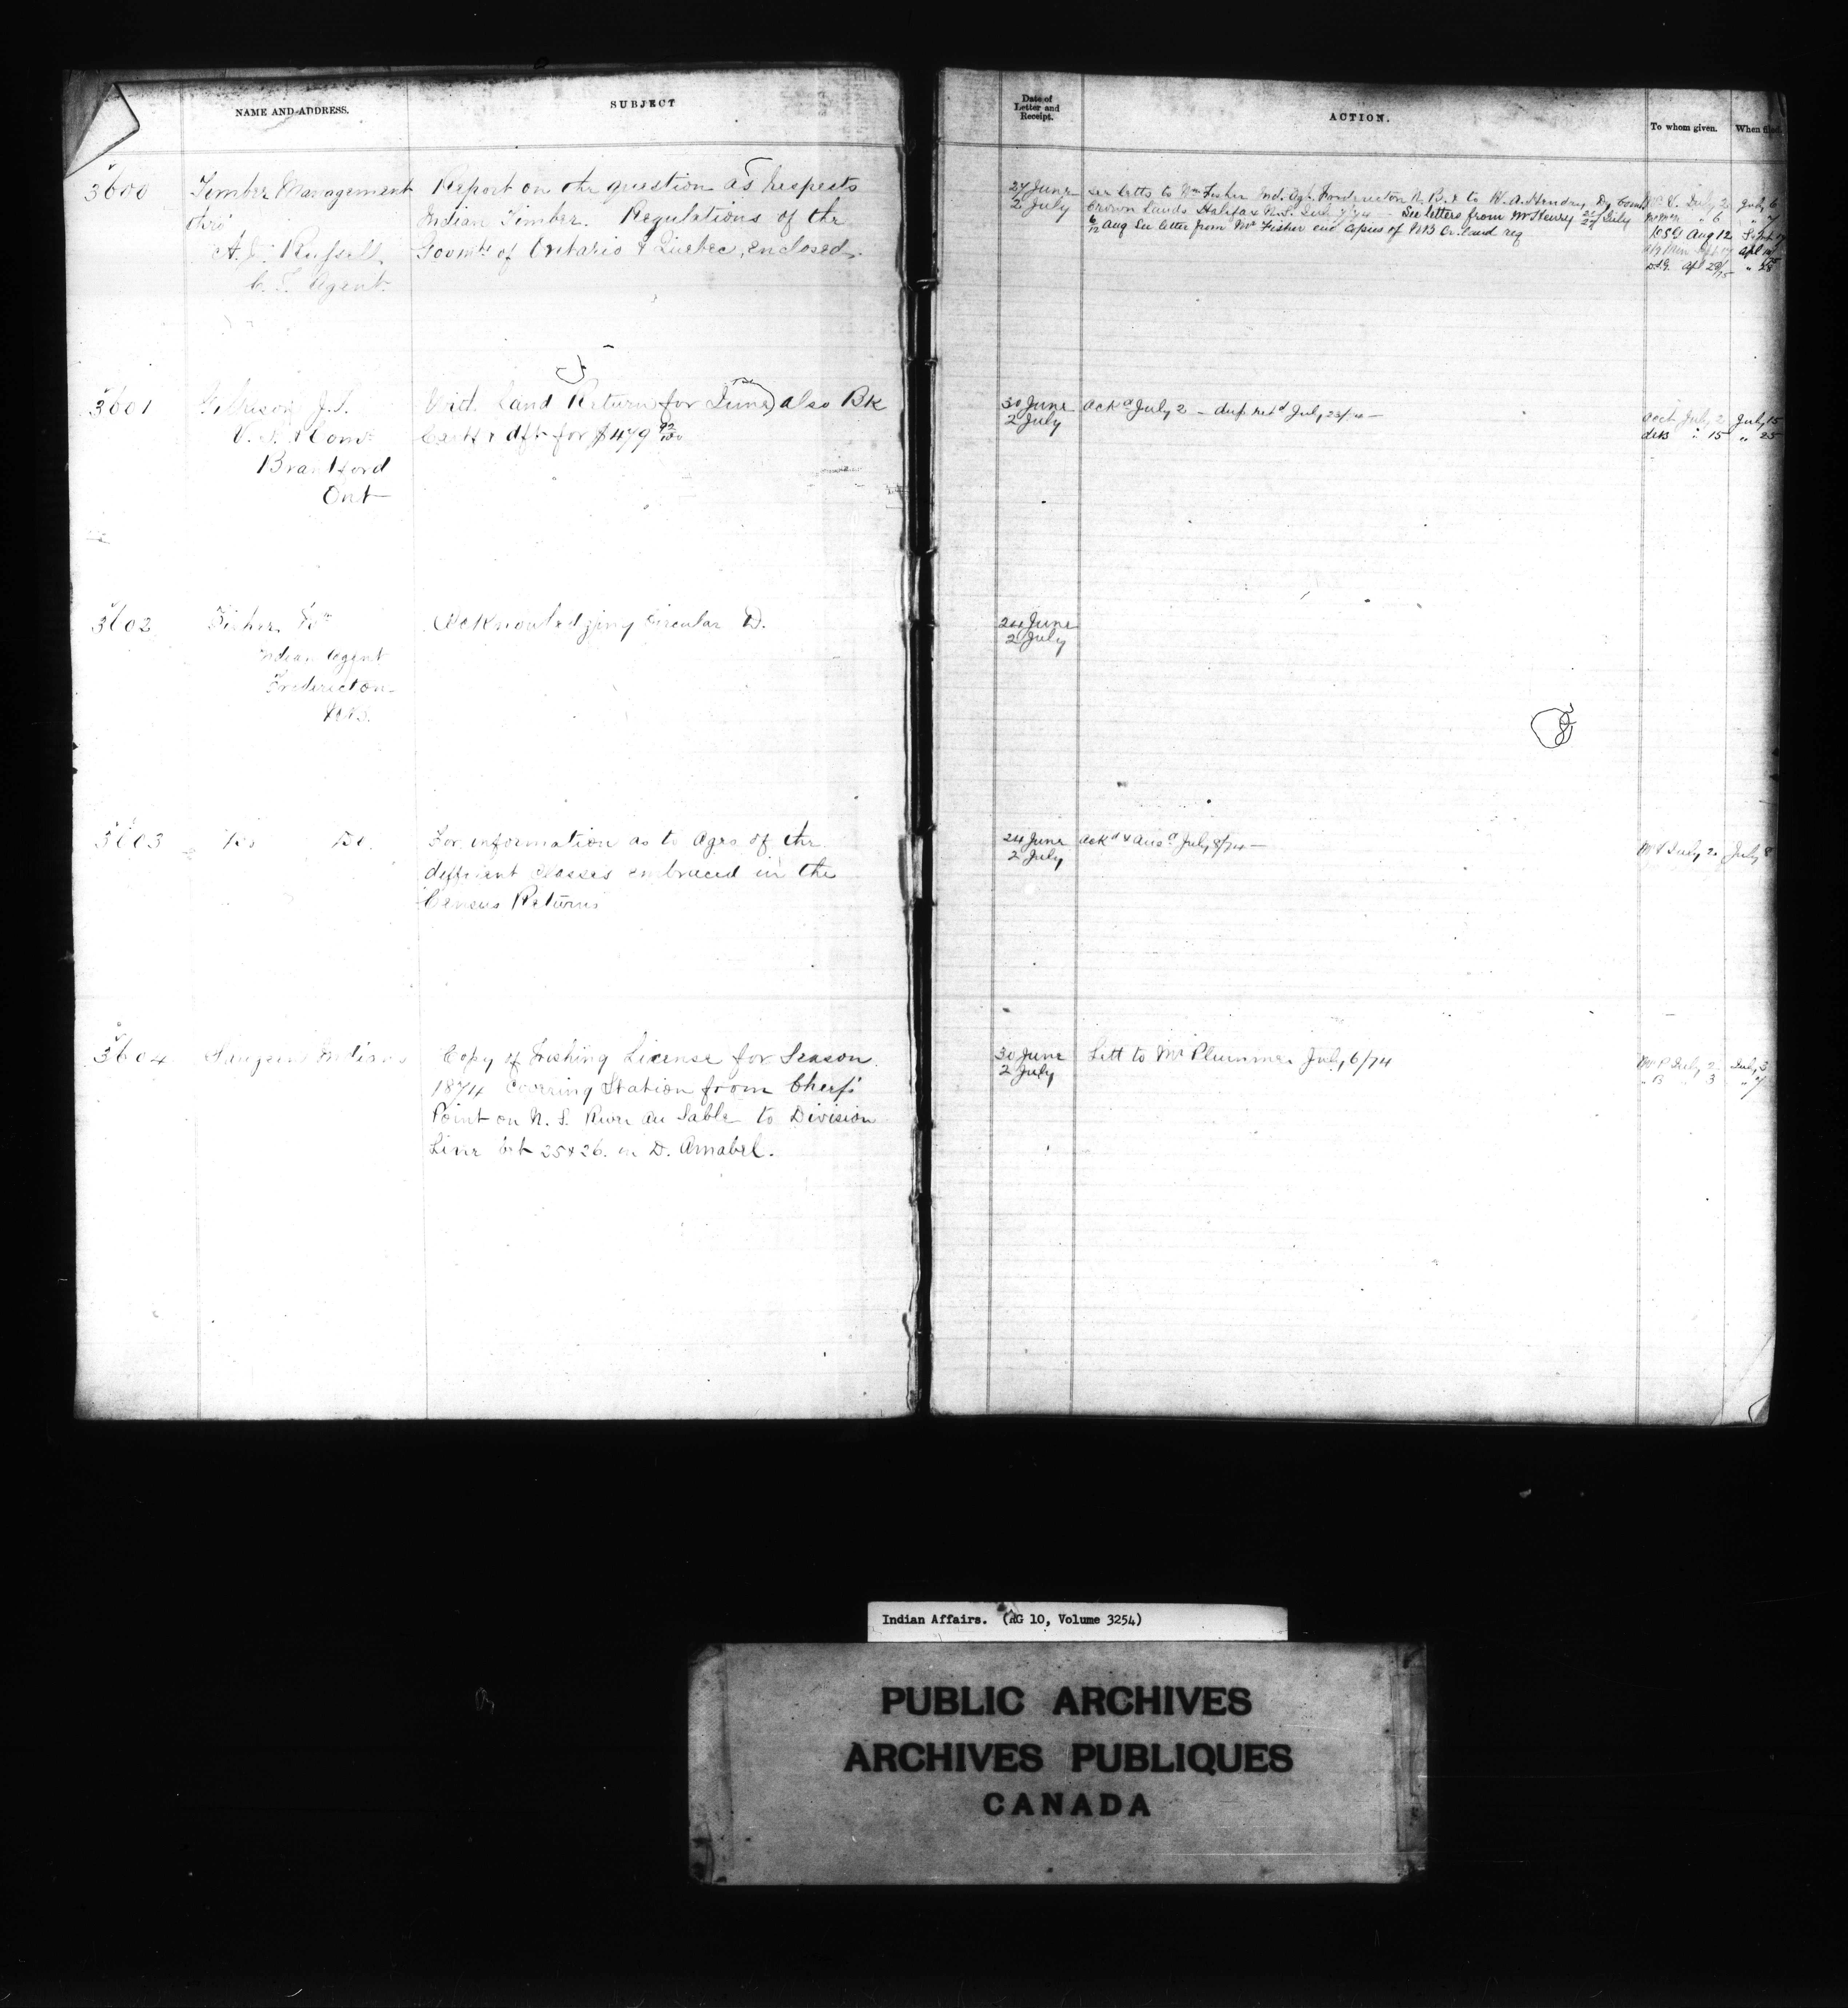 NAME AND ADDRESS.
SUBJECT
3600
Timber Management
thro'
A. J. Russell
C. T. Agent.
Report on the question as respects
Indian Timber. Regulations of the
Govmts of Ontario & Quebec, enclosed.
3601
Gilkison J. T.
V. S. & Comr
Brantford
Ont
With Land Return for June, also Bk
Certf & dft for $479 92/100
3602
Fisher Wm
Indian Agent
Fredericton
N.B.
Acknowledging Circular D.
3603
Do Do.
For information as to ages of the
different Classes embraced in the
Census Returns
3604
Saugeen Indians
Copy of Fishing License for Season
1874 covering Station from Chief's
Point on N. S. River au Sable to Division
Line bet 25 & 26. in D. Amabel.
Date of
Letter and
Receipt.
ACTION.
To whom given.
When filed.
27 June
2 July
See letts to Wm Fisher Ind. Agt. Fredericton N. B. & to H. A. Hendry Dy Comr
Crown Lands Halifax N.S. July 7/74 - See letters from Mr Hendry 21/27 July
6/12 Aug See letter from Mr Fisher enc copies of NB Cr. land reg
Mr V. July 2 July 6
" 6 " 7
Aug 12 Sept 17
Apl 28/75 " 28
30 June
2 July
Ackd July 2 - dup. retd July 23/74 -
Acct. July 2 July 15
" 15 " 25
24 June
2 July
24 June
2 July
Ackd & Ansd July 8/74 -
Mr V July 2. July 8
30 June
2 July
Lett to Mr Plummer July 6/74
Mr P July 2 July 3
" B " 3 " 7
Indian Affairs. (RG 10, Volume 3254)
PUBLIC ARCHIVES
ARCHIVES PUBLIQUES
CANADA